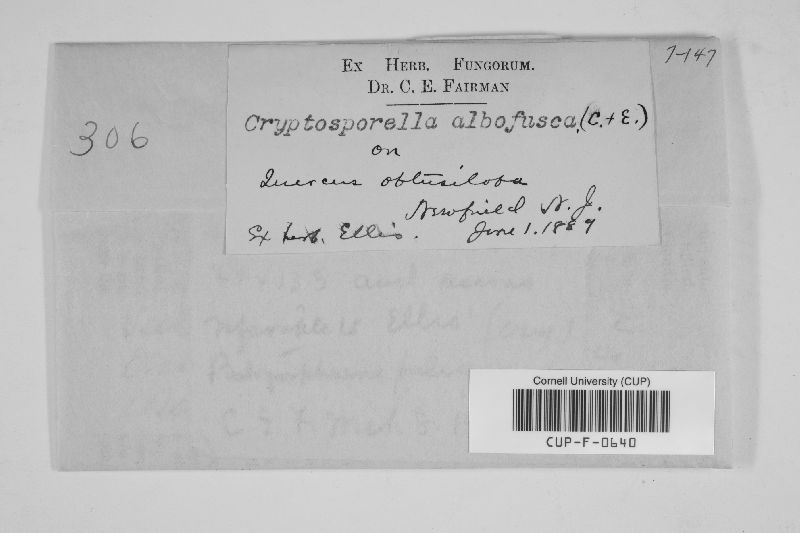 7-147
306
Ex Herb. Fungorum.
Dr. C. E. Fairman
Cryptosporella albofusca, (C. + E.)
on
Quercus obtusiloba
Newfield N. J.
Ex herb. Ellis. June 1. 1889
and
Ellis
C. E. F.
Cornell University (CUP)
CUP-F-0640